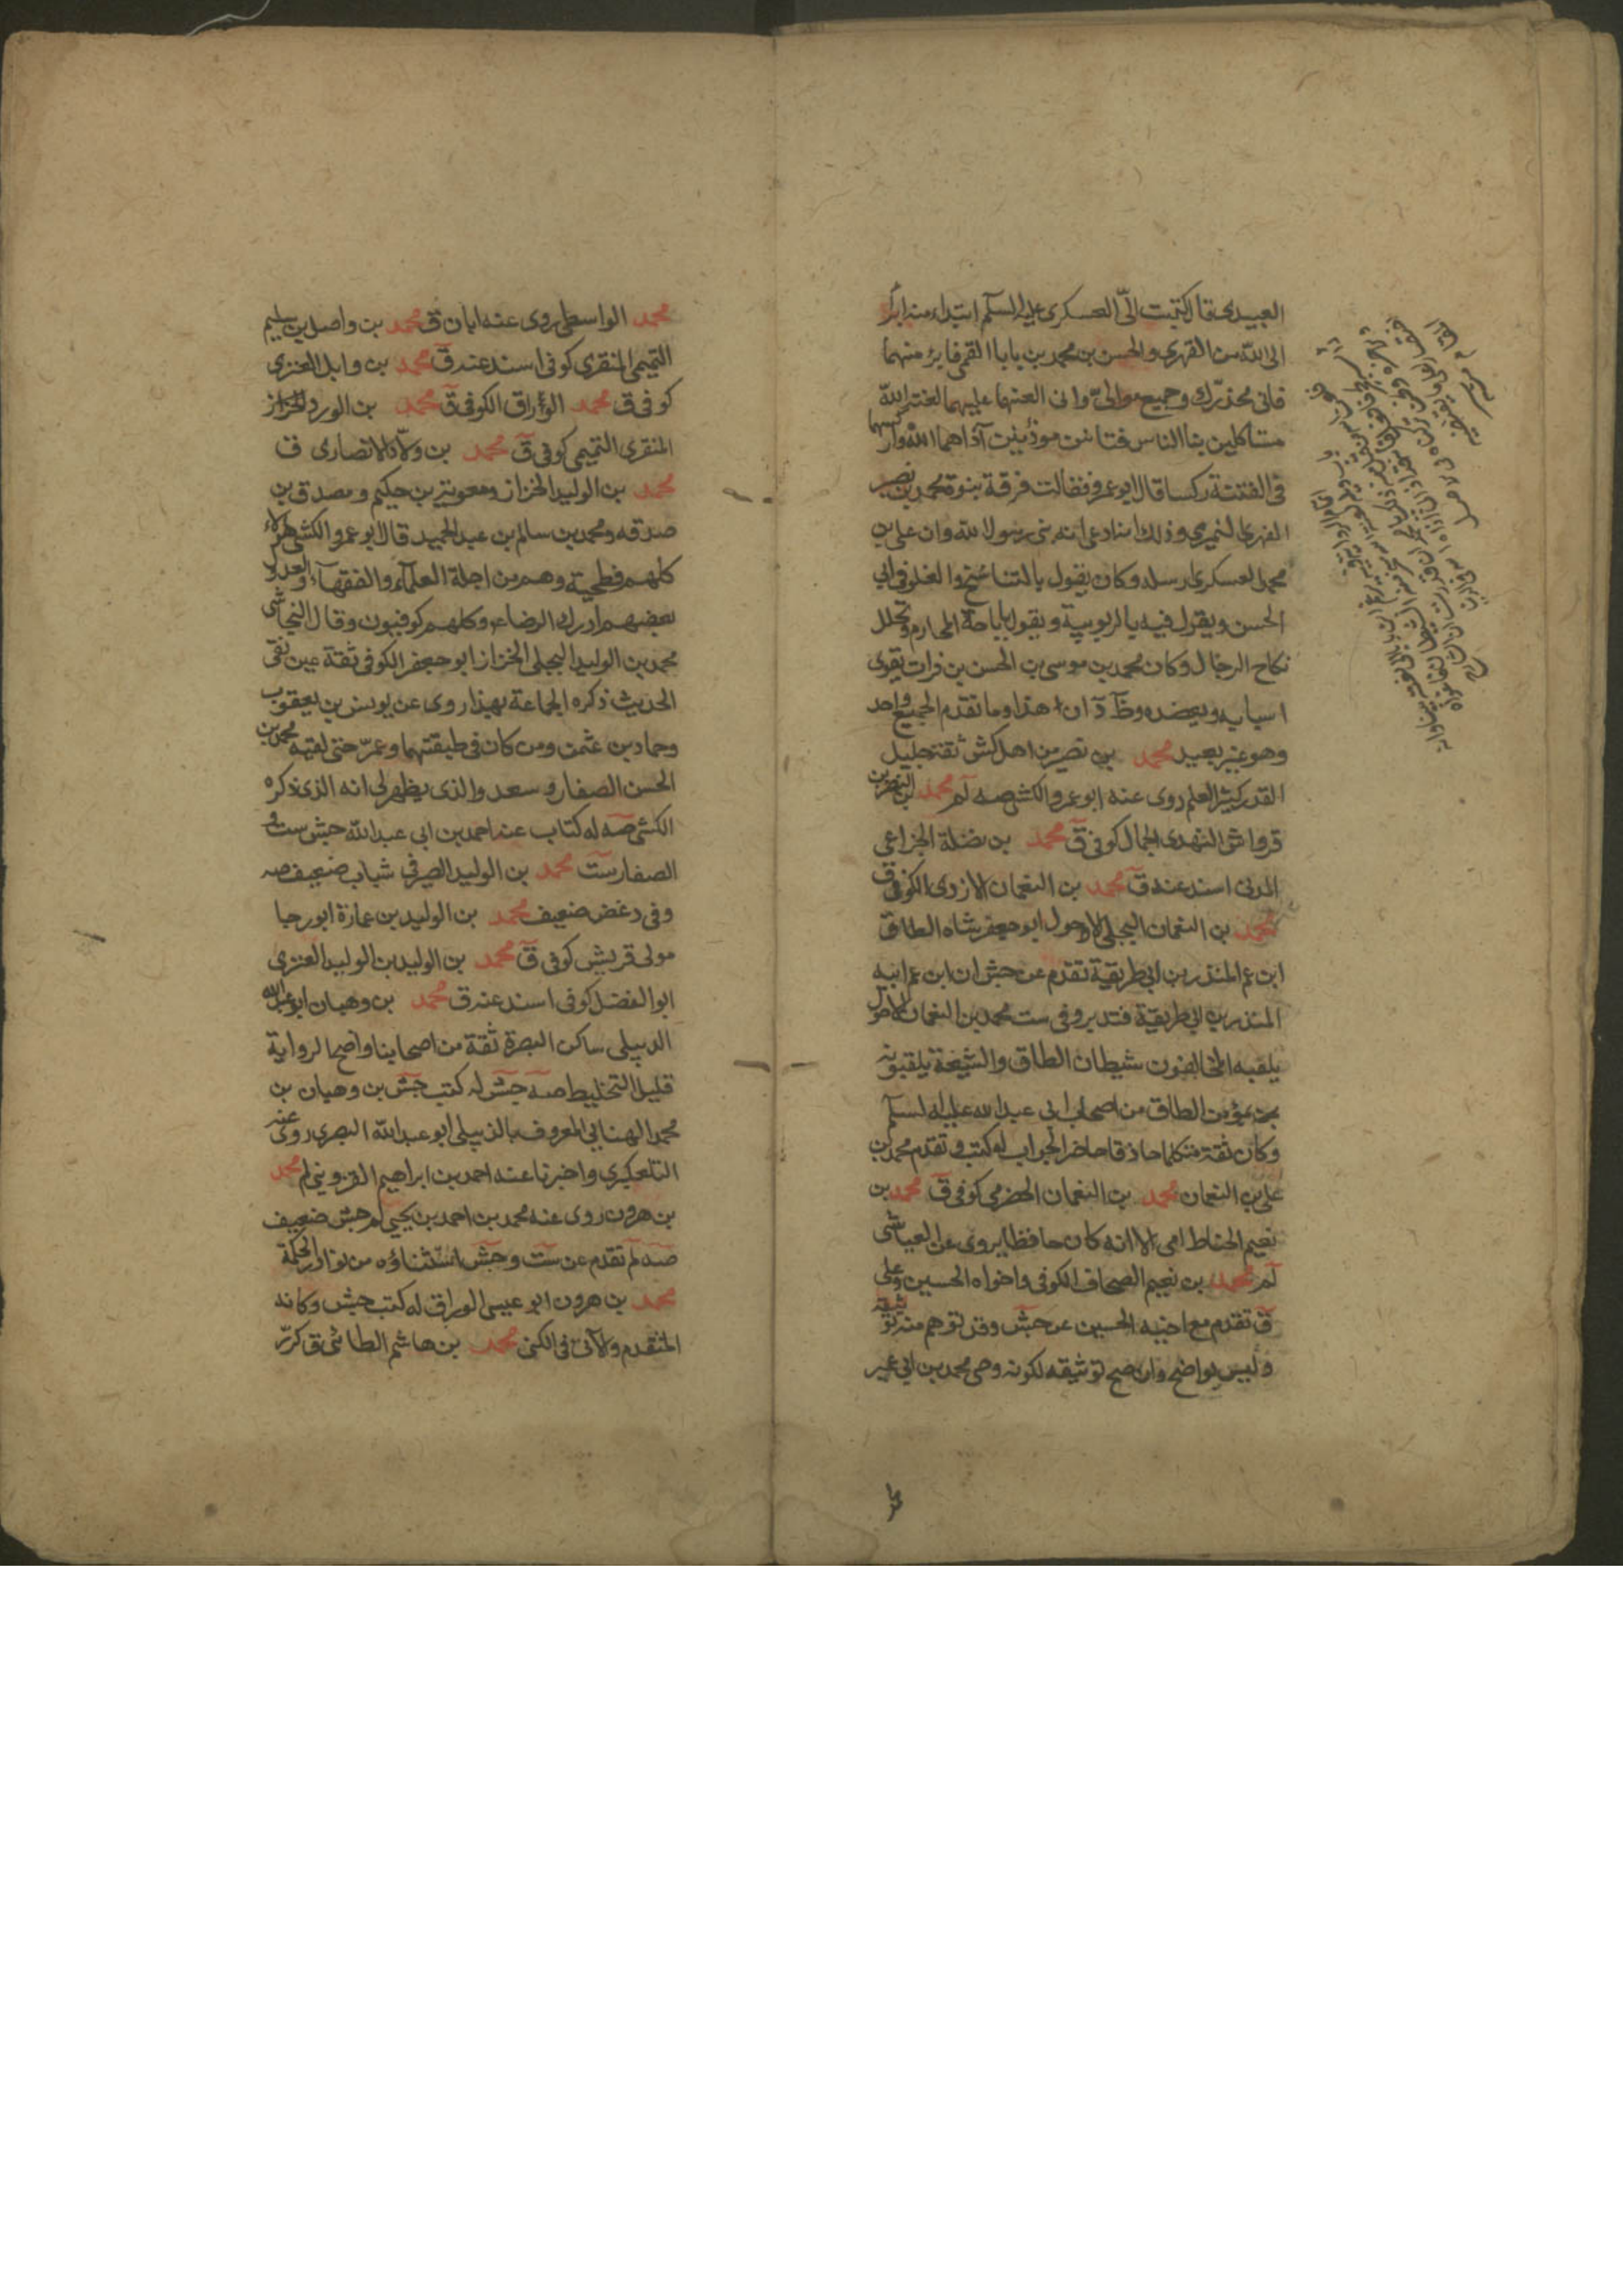 العبيدى قال كتبت الىّ العسكرى عليه السلم ابتداء منه ابرأ
الى الله من الفهرى والحسن بن محمد بن بابا القمى فابرء منهما
فانى محذرك وجميع موالىّ وانى العنهما عليهما لعنة الله
مستاكلين بنا الناس فتانين موذيين آذاهما الله واركسهما
فى الفتنة ركسا قال ابو عمرو فقالت فرقة بنبوة محمد بن نصير
الفهرى النميرى وذلك انه ادعى انه نبى رسول الله وان على بن
محمد العسكرى ارسله وكان يقول بالتناسخ والغلو فى ابى
الحسن ويقول فيه بالربوبية ويقول باباحة المحارم وتحلل
نكاح الرجال وكان محمد بن موسى بن الحسن بن فرات يقوى
اسبابه ويعضده وظآ د ان هذا وما تقدم الجميع واحد
وهو غير بعيد محمد بن نصير من اهل كش ثقة جليل
القدر كثير العلم روى عنه ابو عمرو الكشى صه لم محمد بن النضر بن
قرواش النهدى الجمال كوفى ق محمد بن نضلة الخزاعى
المدنى اسند عنه ق محمد بن النعمان الازدى الكوفى ق
محمد بن النعمان البجلى الاحول ابو جعفر شاه الطاق
ابن عم المنذر بن ابى طريفة تقدم عن جش ان ابن عم ابيه
المنذر بن ابى طريفة فتدبر وفى ست محمد بن النعمان الاحول
يلقبه المخالفون شيطان الطاق والشيعة يلقبونه
بمؤمن الطاق من اصحاب ابى عبد الله عليه السلم
وكان ثقة متكلما حاذقا حاضر الجواب له كتب وتقدم محمد بن
على بن النعمان محمد بن النعمان الحضرمى كوفى ق محمد بن
نعيم الخياط امى الا انه كان حافظا يروى عن العياشى
لم محمد بن نعيم الصحاف الكوفى واخواه الحسين وعلى
ق تقدم مع اخيه الحسين عن جش وقد توهم منه توثيقه
وليس بواضح وان صح توثيقه لكونه وصى محمد بن ابى عمير
محمد الواسطى روى عنه ابان ق محمد بن واصل بن سليم
التميمى المنقرى كوفى اسند عنه ق محمد بن وابل العنزى
كوفى ق محمد الوراق الكوفى ق محمد بن الورد الخزاز
المنقرى التميمى كوفى ق محمد بن ولاد الانصارى ق
محمد بن الوليد الخزاز ومعوية بن حكيم ومصدق بن
صدقه ومحمد بن سالم بن عبد الحميد قال ابو عمرو الكشى هؤلاء
كلهم فطحية وهم من اجلة العلماء والفقهآء والعدول
بعضهم ادرك الرضا ع وكلهم كوفيون وقال النجاشى
محمد بن الوليد البجلى الخزاز ابو جعفر الكوفى ثقة عين نقى
الحديث ذكره الجماعة بهذا روى عن يونس بن يعقوب
وحماد بن عثمن ومن كان فى طبقتهما وعمرّ حتى لقيه محمد بن
الحسن الصفار وسعد والذى يظهر لى انه الذى ذكره
الكشى صه له كتاب عنه احمد بن ابى عبد الله جش ست و
الصفار ست محمد بن الوليد الصيرفى شباب ضعيف صه
وفى د غض ضعيف محمد بن الوليد بن عمارة ابو رجا
مولى قريش كوفى ق محمد بن الوليد بن الوليد العنزى
ابو الفضل كوفى اسند عنه ق محمد بن وهبان ابو عبد الله
الدبيلى ساكن البصرة ثقة من اصحابنا واضح الرواية
قليل التخليط صه جش له كتب جش بن وهبان بن
محمد الهنائى المعروف بالدبيلى ابو عبد الله البصرى روى عنه
التلعكبرى واخبرنا عنه احمد بن ابراهيم القزوينى لم محمد
بن هرون روى عنه محمد بن احمد بن يحيى لم جش ضعيف
صه لم تقدم عن ست وجش استثناؤه من نوادر الحكمة
محمد بن هرون ابو عيسى الوراق له كتب جش وكانه
المتقدم والآتى فى الكنى محمد بن هاشم الطائى ق كرّر